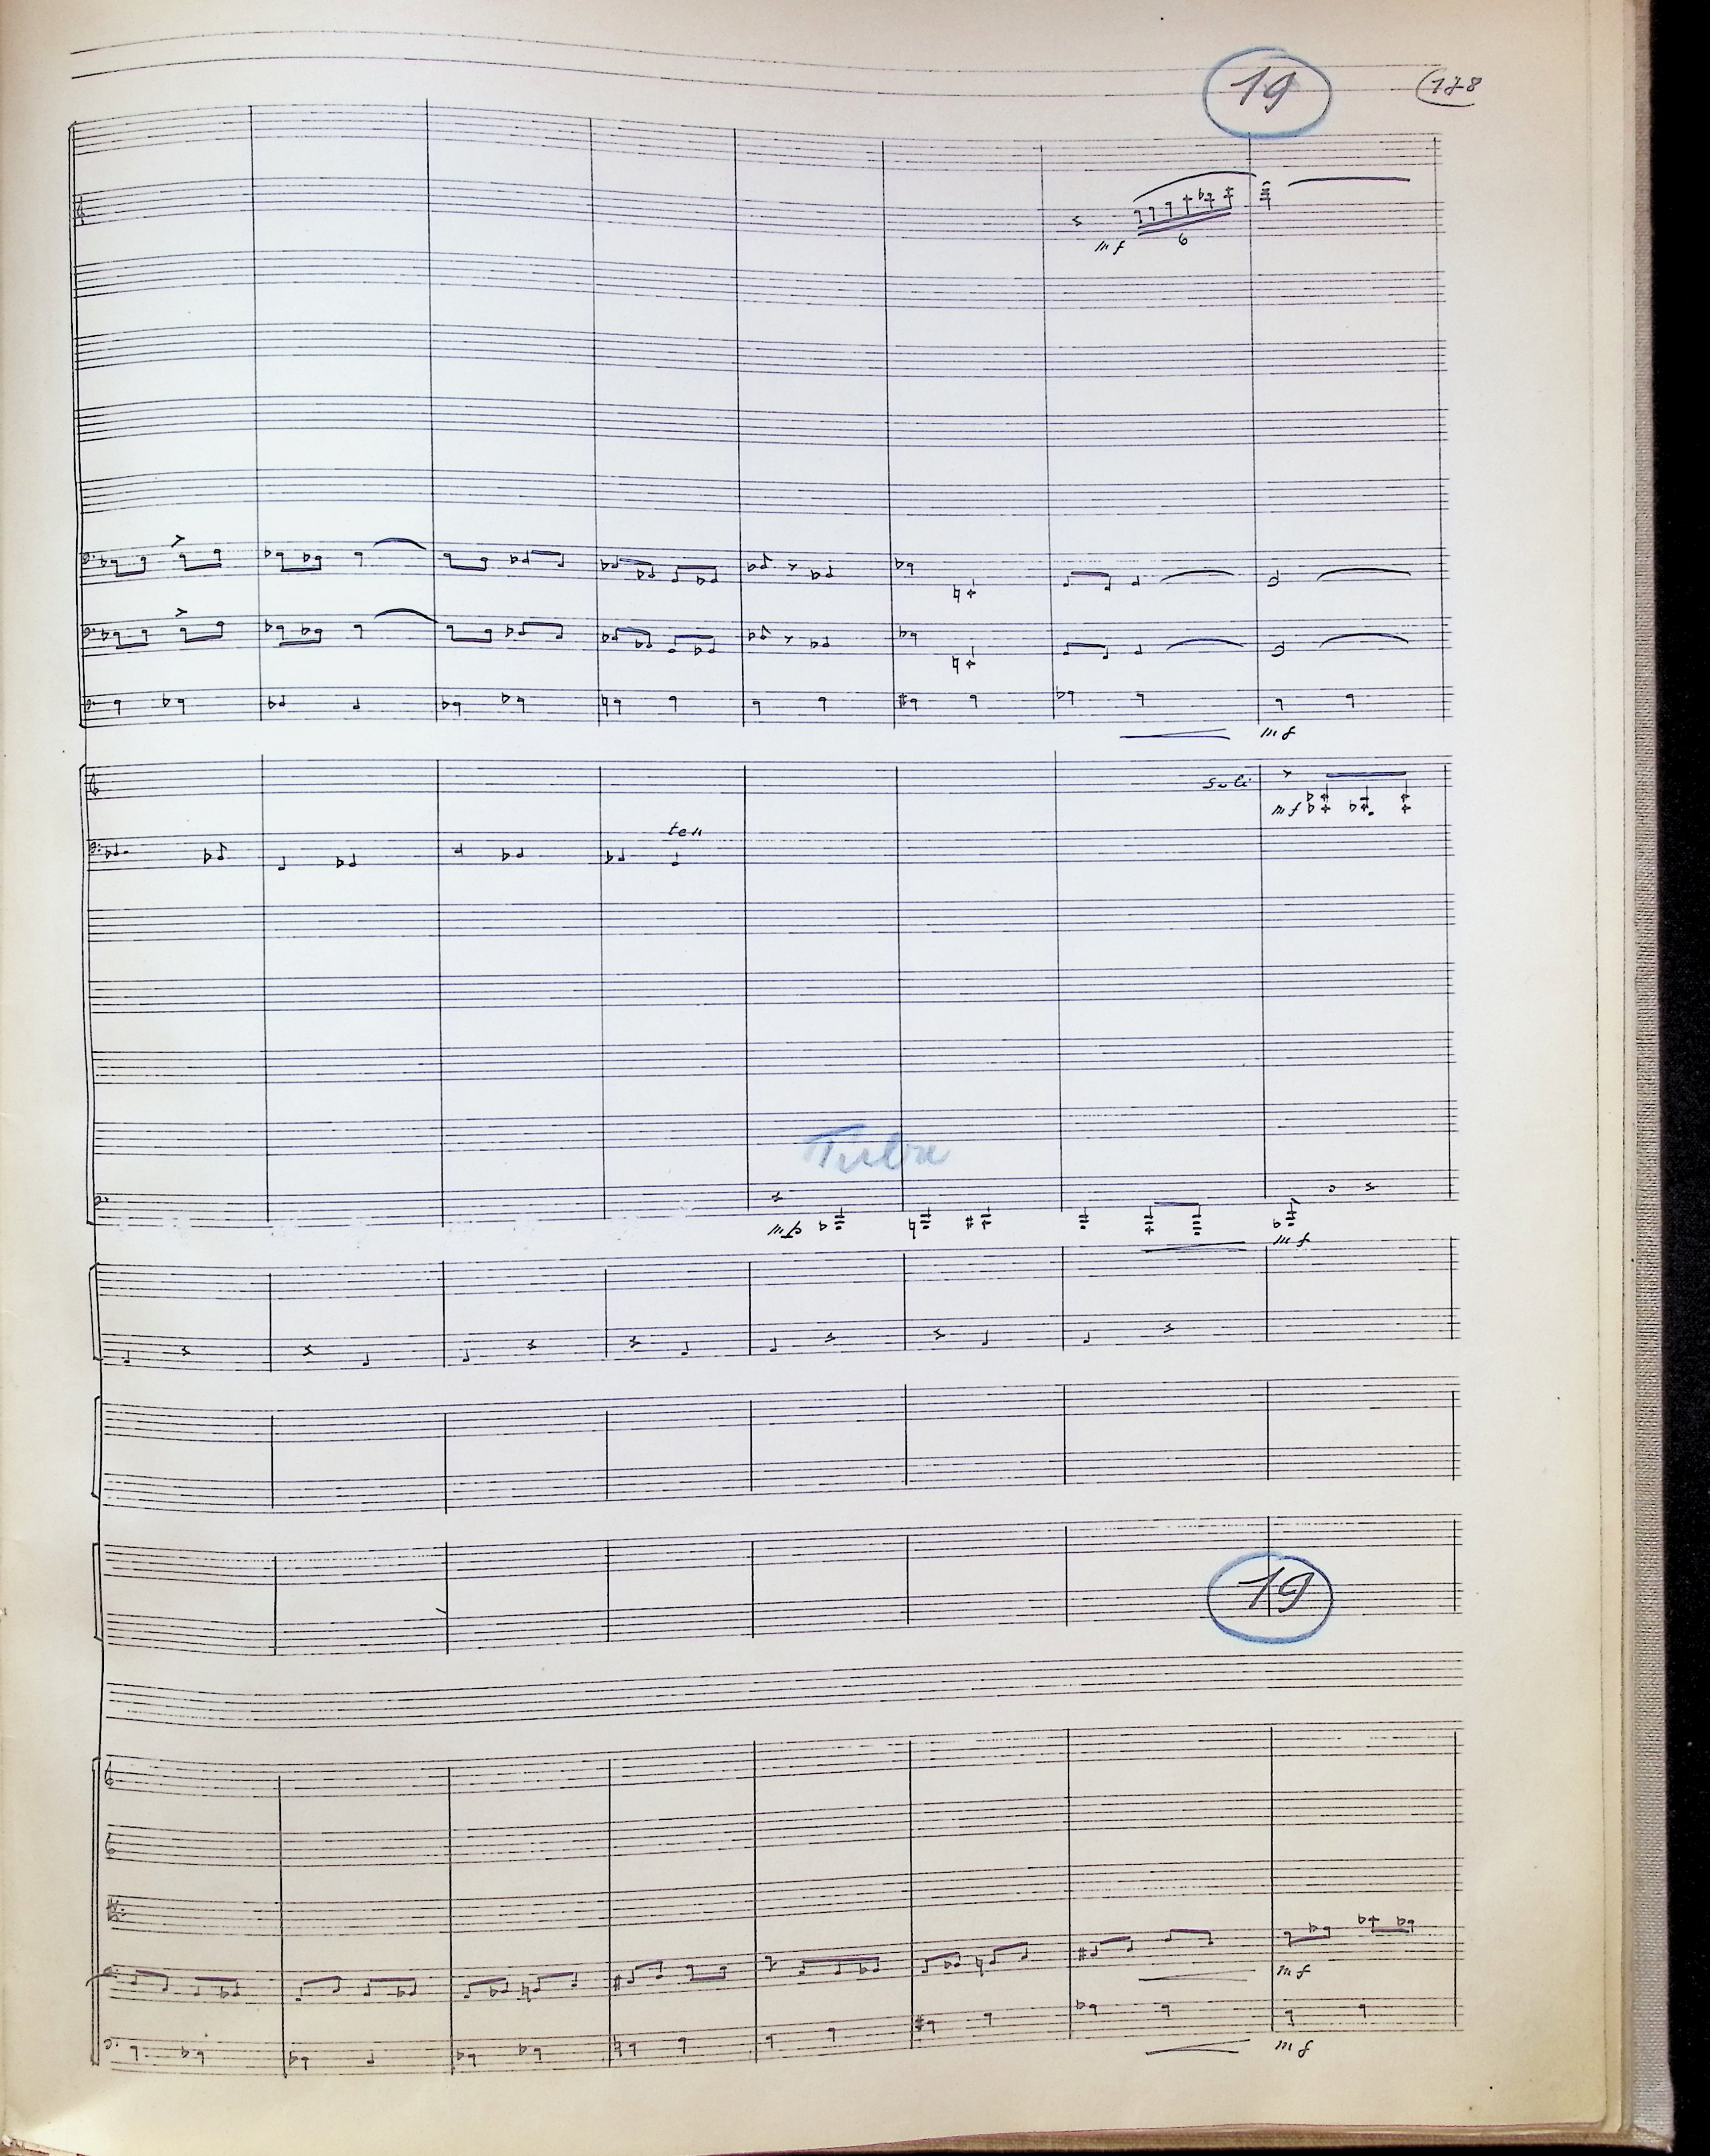 19
178
mf
6
mf
soli
mf
ten
Tuba
mf
mf
19
mf
mf